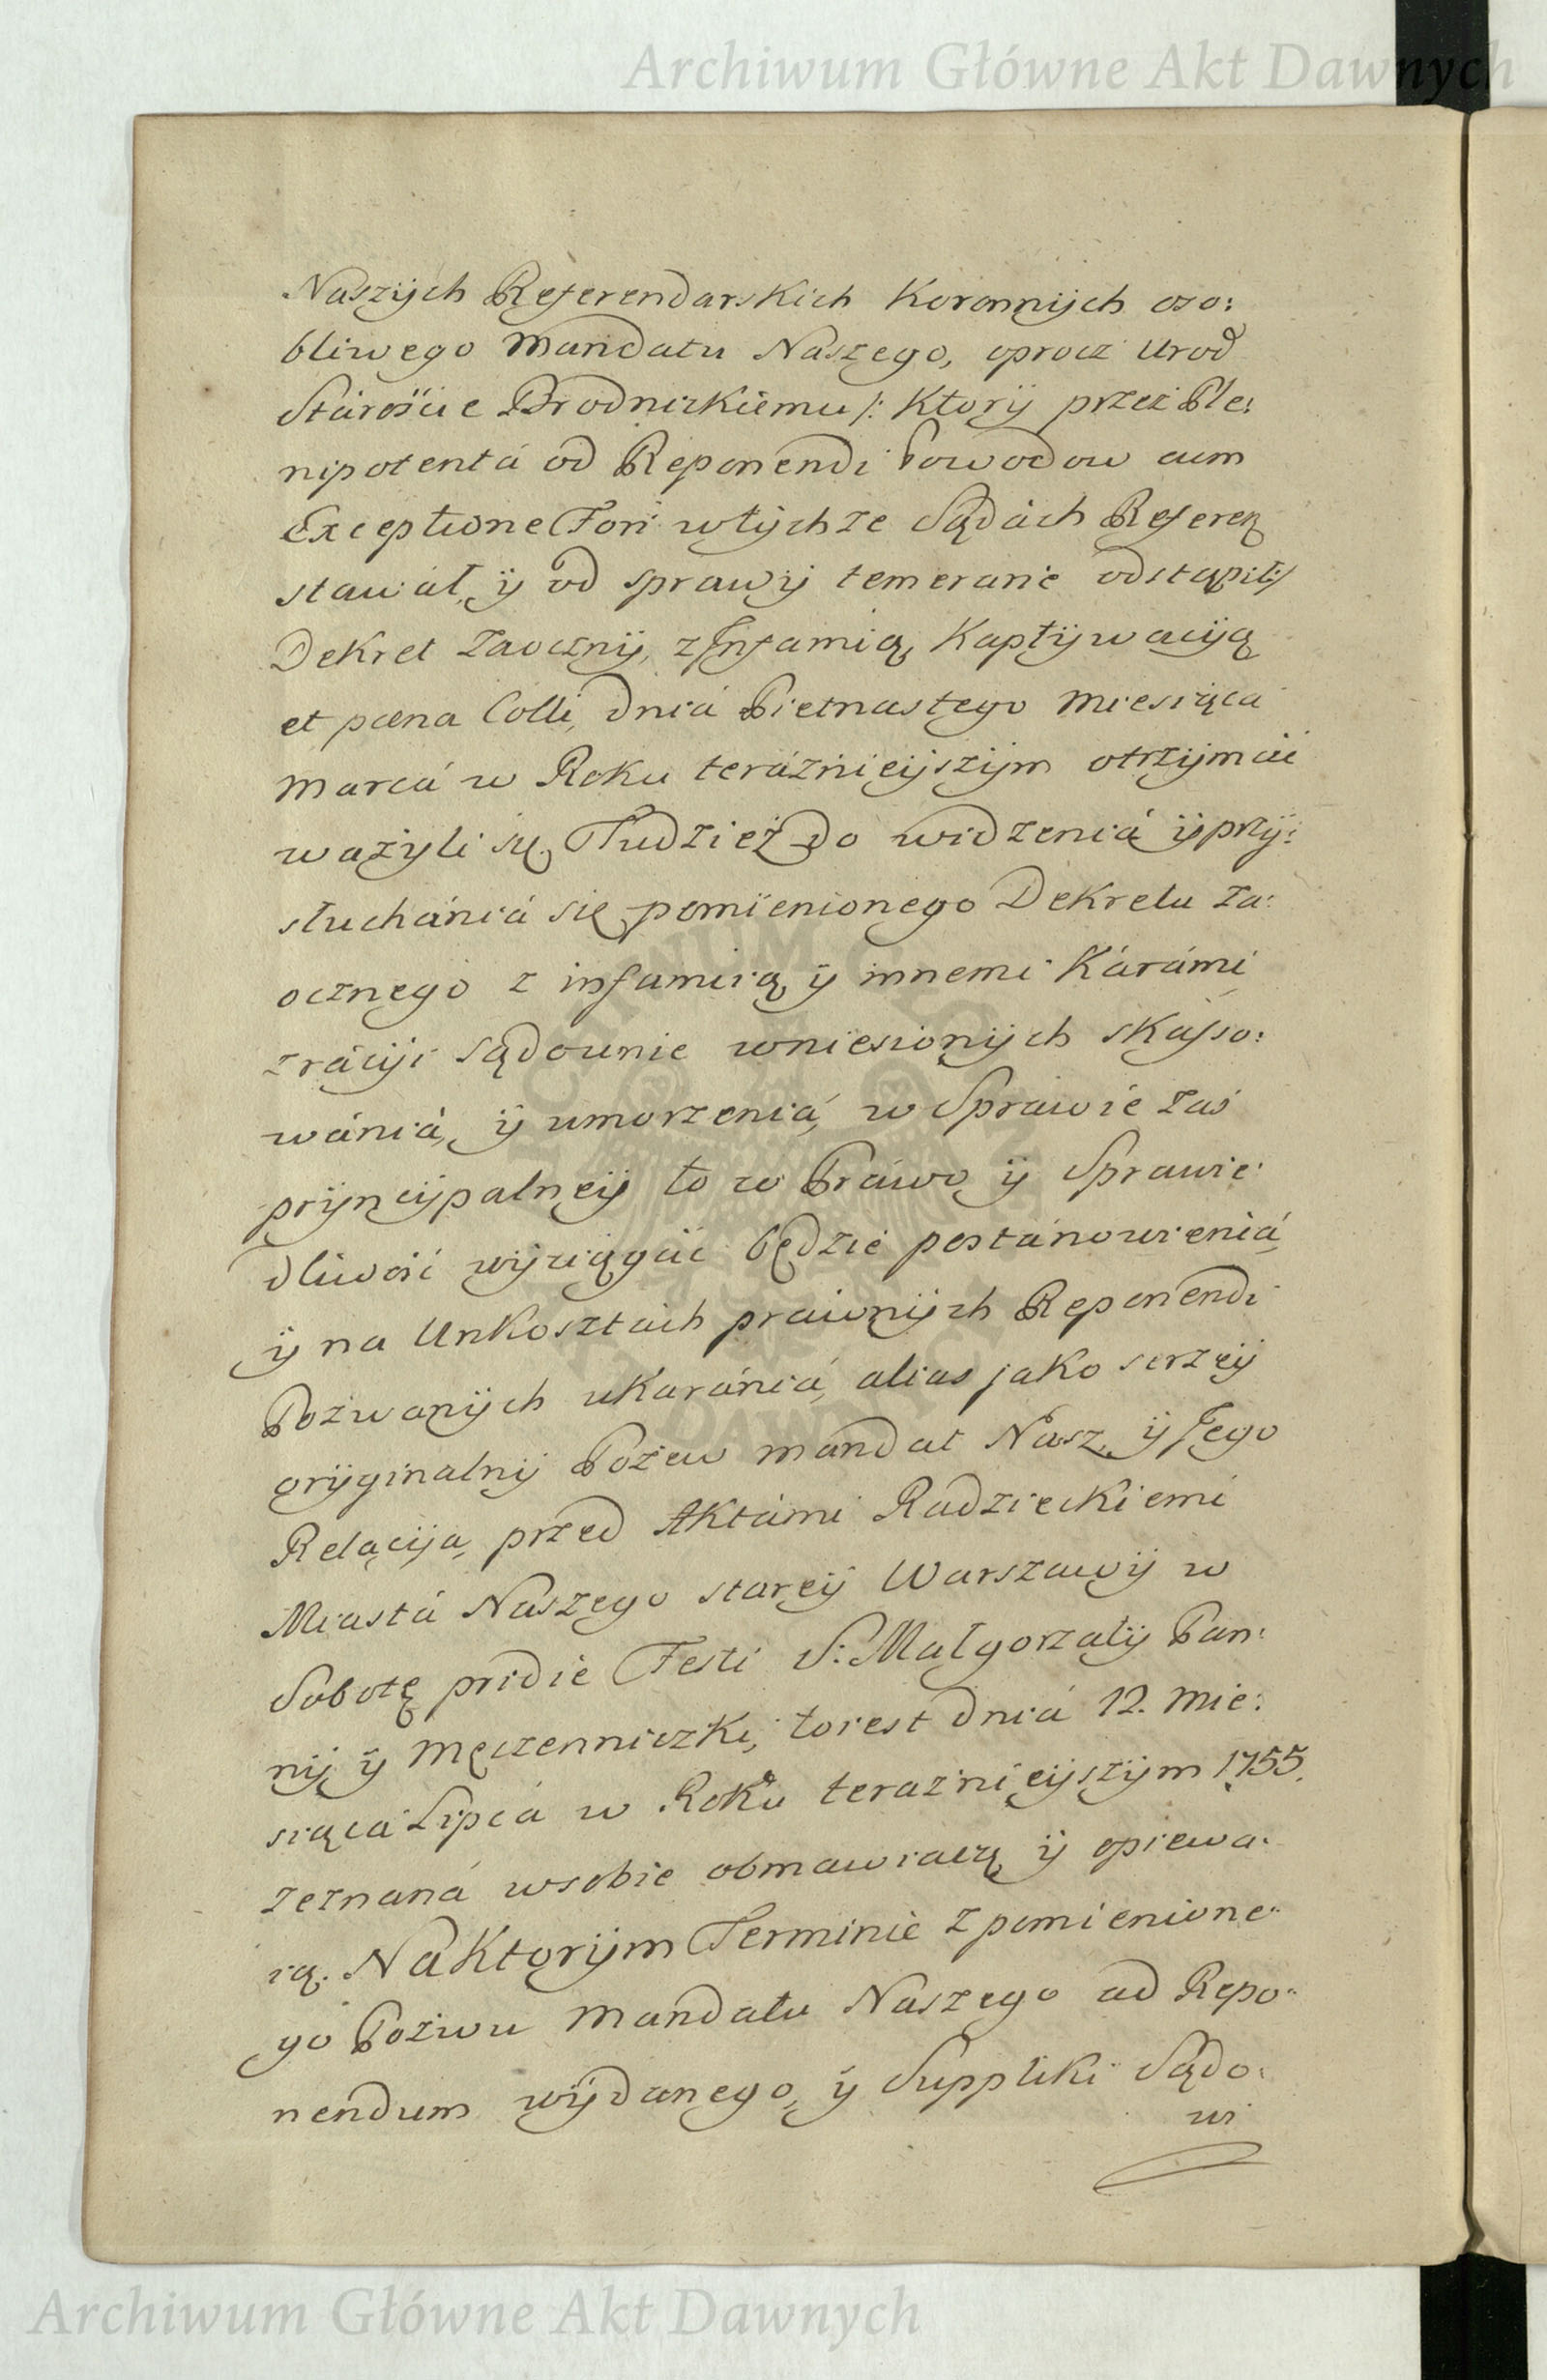 Archiwum Główne Akt Dawnych
Naszÿch Referendarskich Koronnÿch oso:
bliwego Mandatu Naszego, oprocz Urod
Stárośćie Brodnickiemu /: Ktorÿ przez Ple:
nipotentá od Reponendi Powodow cum
Exceptione Fori wtÿchze Sądách Referen
stawáł, ÿ od sprawÿ temeranie odstąpił:/
Dekret zaocznÿ, z Infamią, Kaptÿwacÿą
et pœna Colli, dniá Pietnastego Miesiąca
Marcá w Roku teráźnieÿszÿm otrzÿmáć
ważyli się. Tudzież do widzeniá ÿ przÿ:
słuchániá się pomienionego Dekretu za:
ocznego z infamią ÿ innemi Kárámi
z rácÿi sądownie wniesionÿch skásso:
wániá, ÿ umorzeniá, w Spráwie záś
prÿncÿpalneÿ to co Práwo ÿ Sprawie:
dliwość wÿciągáć będzie postánowieniá,
ÿ na Unkosztách práwnÿch Reponendi
Pozwanÿch ukarániá, alias jako szerzeÿ
orÿginalnÿ Pozew mandat Nasz, ÿ Jego
Relacÿa, przed Aktámi Radzieckiemi
Miastá Naszego stareÿ Warszawÿ w
Sobotę pridie Festi S: Małgorzatÿ Pan:
nÿ ÿ Męczenniczki, to iest dniá 12. Mie:
siąca Lipcá w Roku teraznieÿszÿm 1755.
zeznaná wsobie obmawiaią ÿ opiewa:
ią. Na Ktorÿm Terminie z pomienione:
go Pozwu Mandatu Naszego ad Repo:
nendum wÿdanego, ÿ Suppliki Sądo:
wi
Archiwum Główne Akt Dawnych